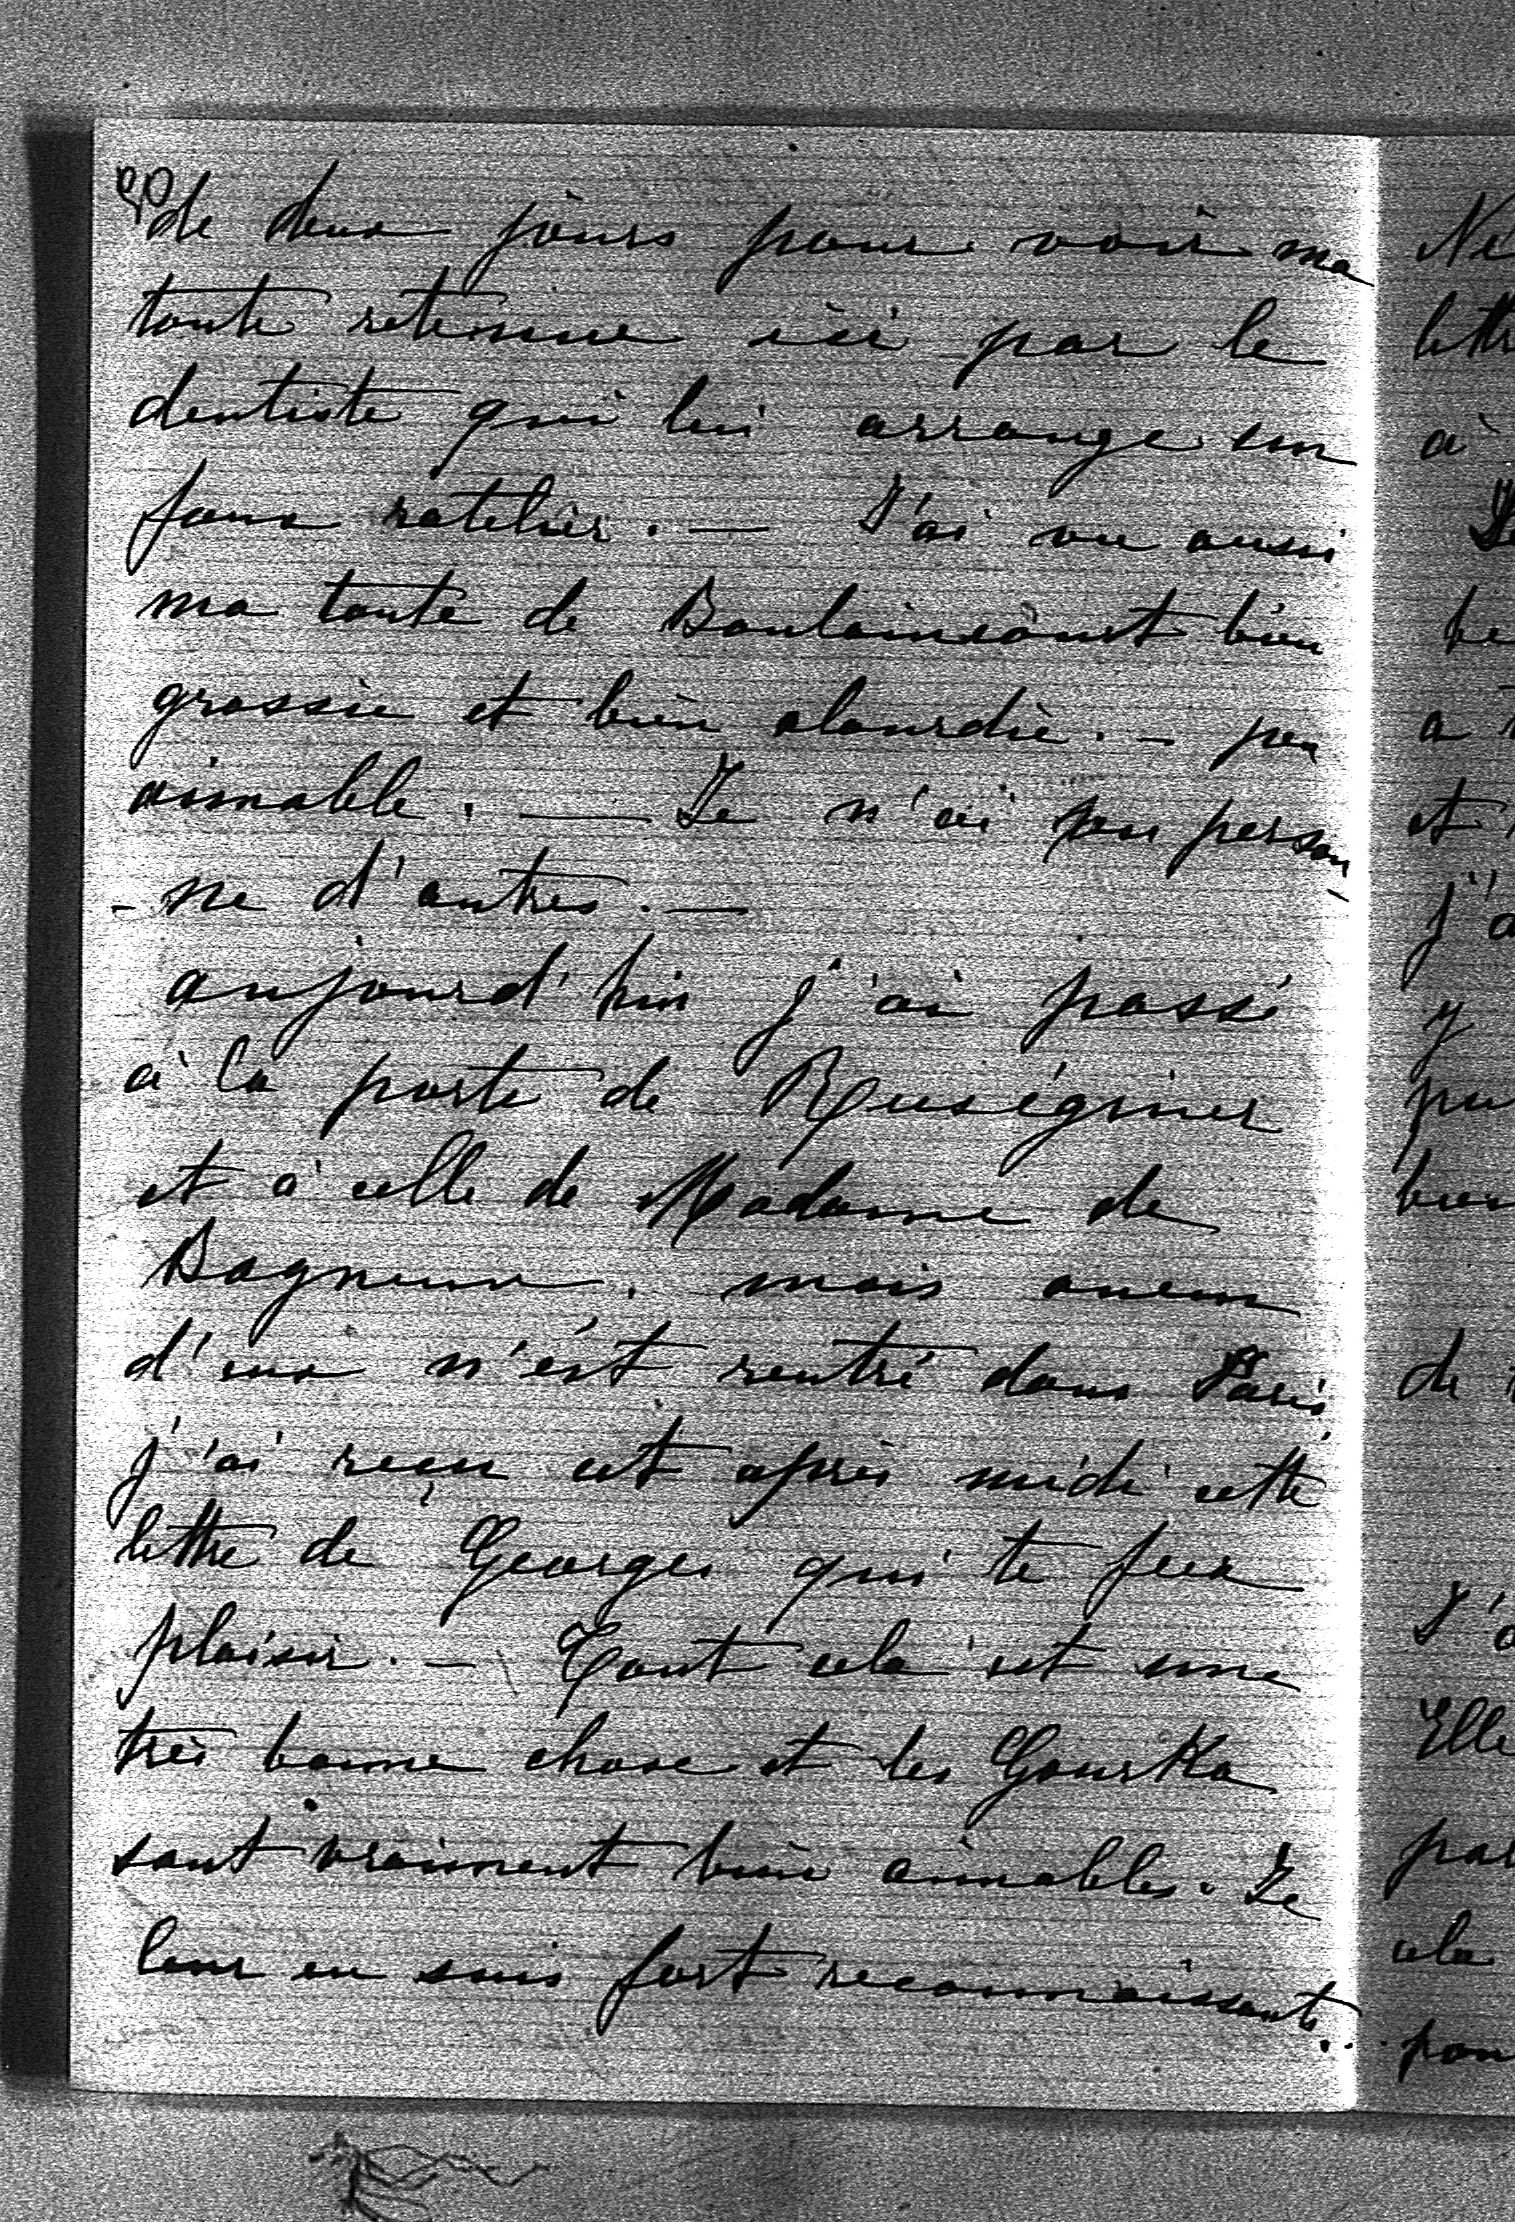 de deux jours pour voir ma
tante retenue ici par le
dentiste qui lui arrange un
faux ratelier. — J'ai vu aussi
ma tante de Boulaincourt bien
grossie et bien alourdie. — peu
aimable. — Je n'ai vu person
- ne d'autres. —
aujourd'hui j'ai passé
à la porte de
et à celle de Madame de
Bagneux. mais aucun
d'eux n'est rentré dans Paris
j'ai reçu cet après midi cette
lettre de Georges qui te fera
plaisir. — Tout cela est une
très bonne chose et les Gourka
sont vraiment bien aimables. Je
leur en suis fort reconnaissante..